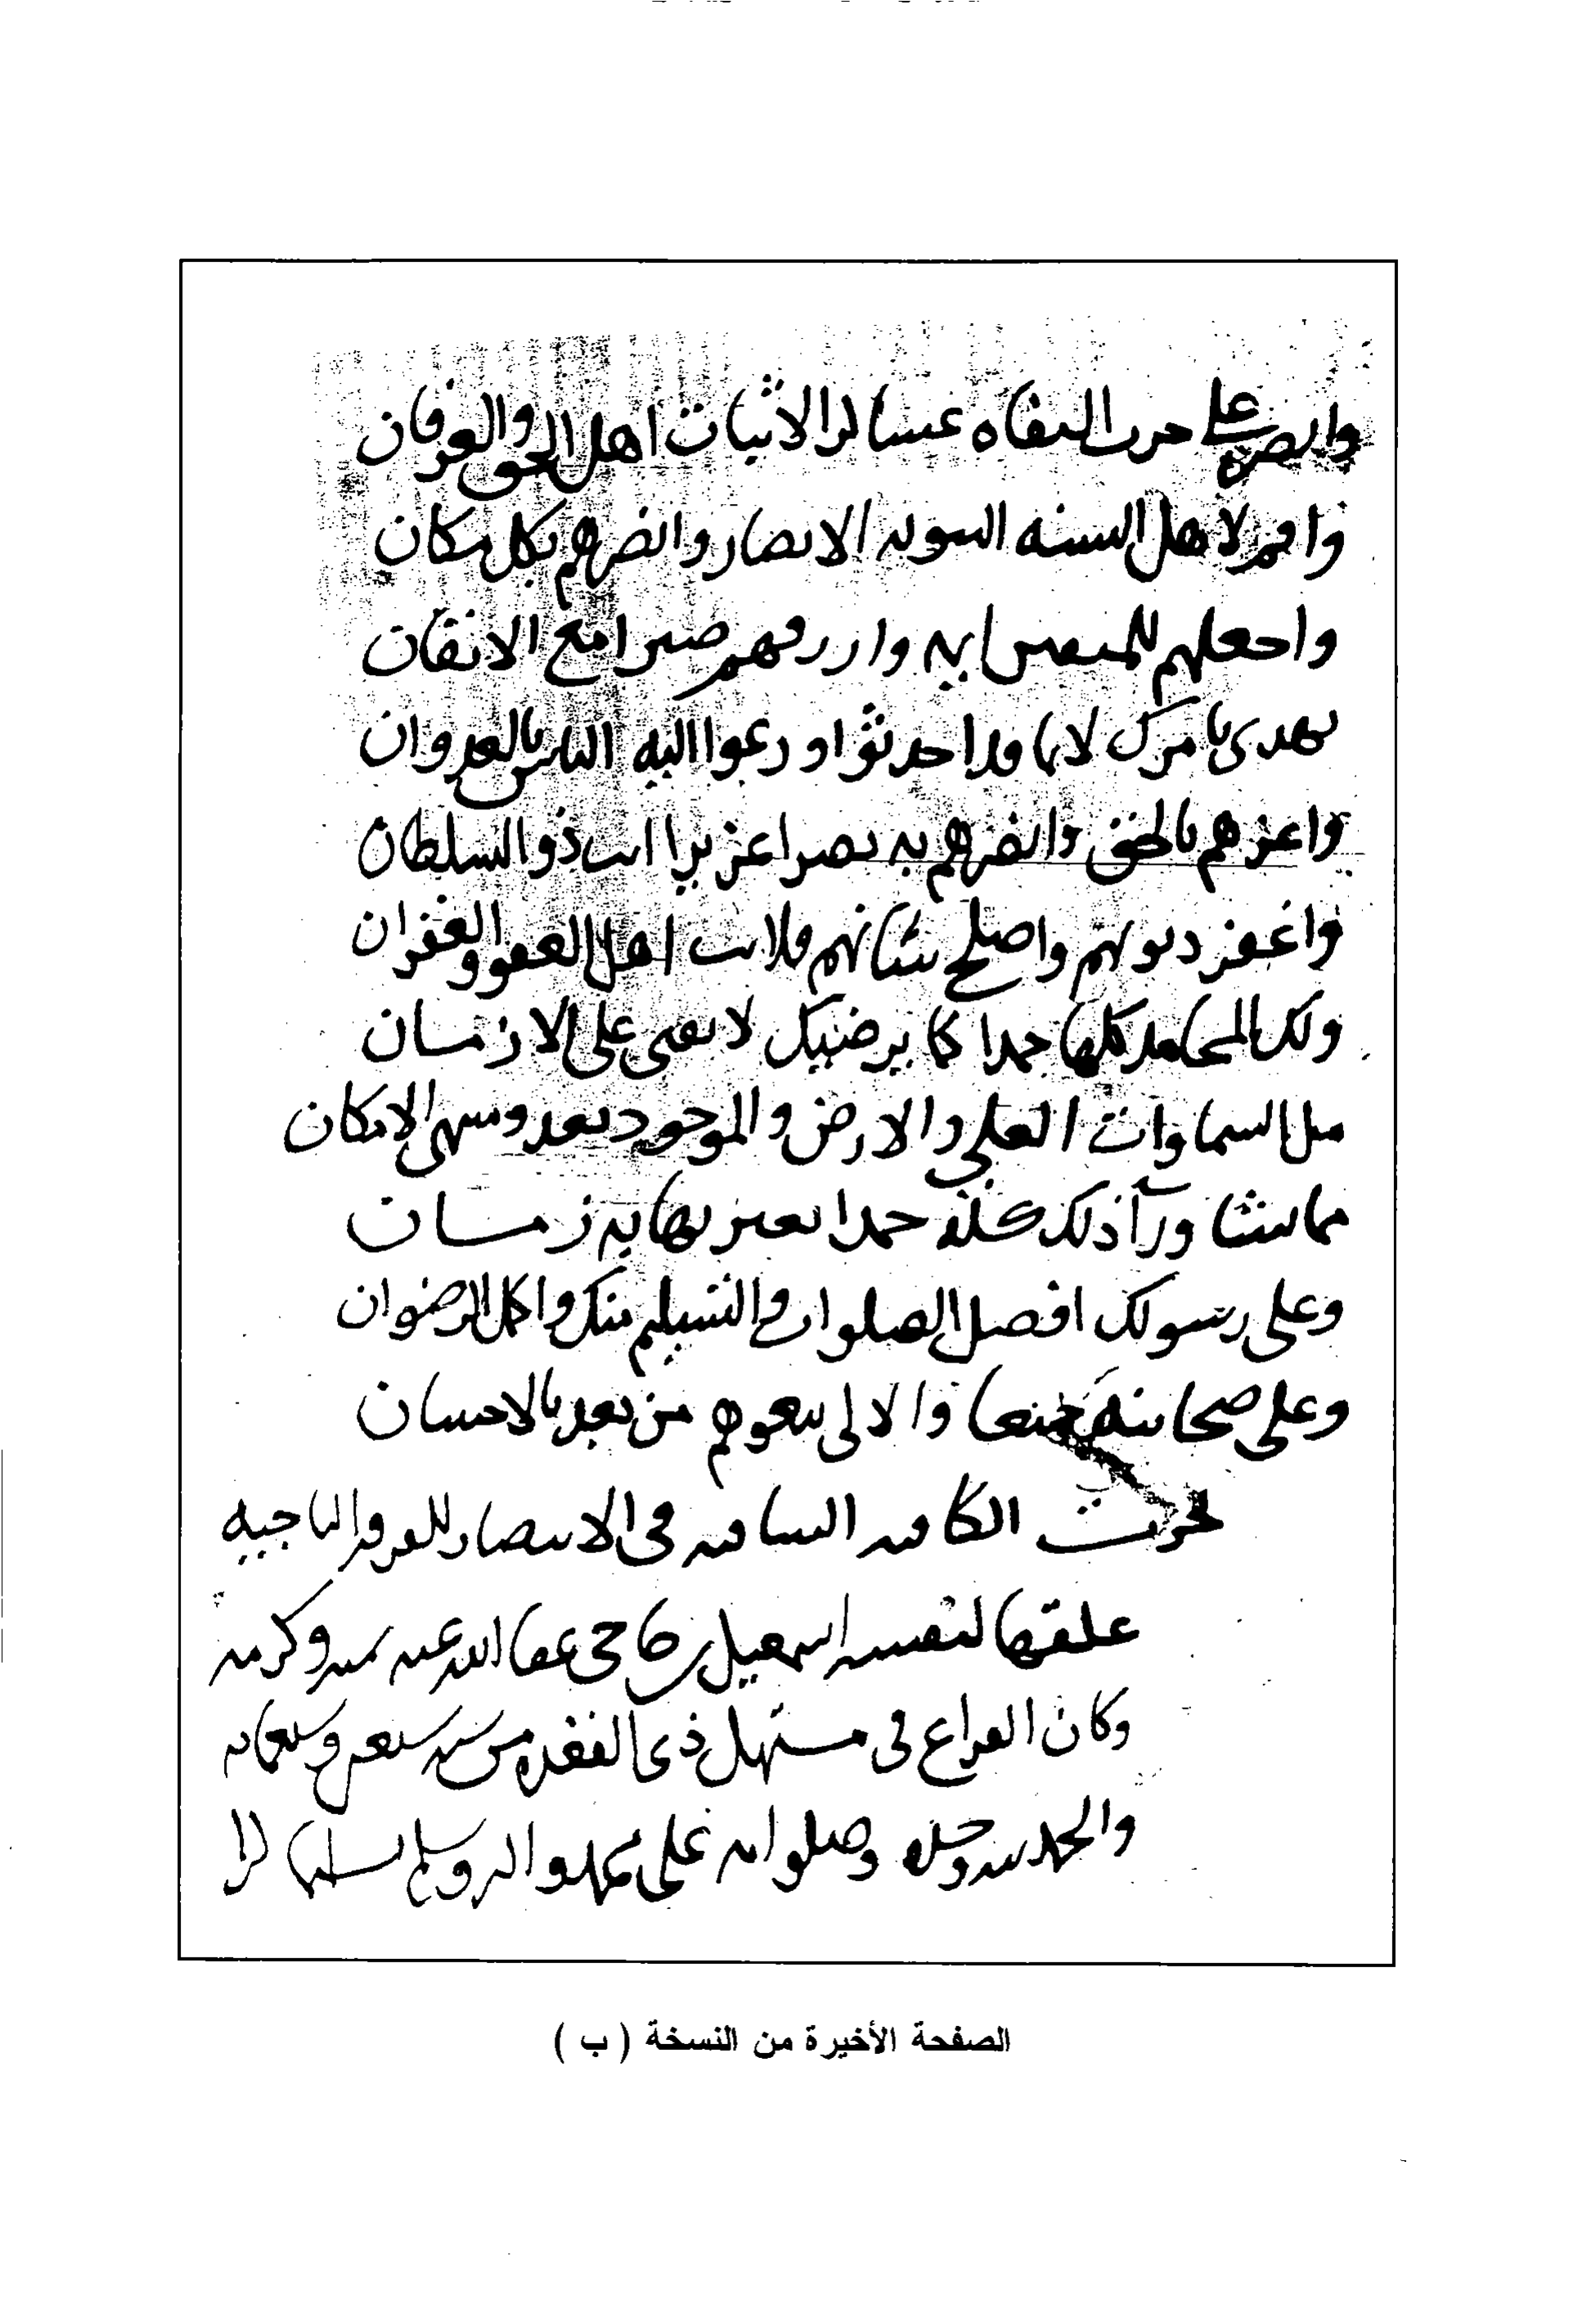 وانصر على حزب النفاه عساكر الاثبات اهل الحق والعرفان
واقم لاهل السنه النبويه الانصار وانصرهم بكل مكان
واجعلهم للمتقين ايمه وارزقهم صبرا مع الايقان
تهدي بامرك لا بما قد احدثوا ودعوا اليه الناس بالعدوان
واعزهم بالحق وانصرهم به نصرا عزيزا انت ذو السلطان
واغفر ذنوبهم واصلح شانهم فلانت اهل العفو والغفران
ولك المحامد كلها حمدا كما يرضيك لا يفنى على الازمان
مل السماوات العلى والارض والموجود بعد ومنتهى الامكان
مما تشا ورآ ذلك كله حمدا بغير نهايه زمان
وعلى رسولك افضل الصلوات والتسليم منك واكمل الرضوان
وعلى صحابته جميعا والالى تبعوهم من بعد بالاحسان
نجزت الكافيه الشافيه في الانتصار للفرقه الناجيه
علقها لنفسه اسمعيل حاجى عفا الله عنه بمنه وكرمه
وكان الفراغ في مستهل ذى القعده من سنه وسبعمايه
والحمد لله وحده وصلواته على محمد واله وسلم تسليما كثيرا
الصفحة الأخيرة من النسخة ( ب )